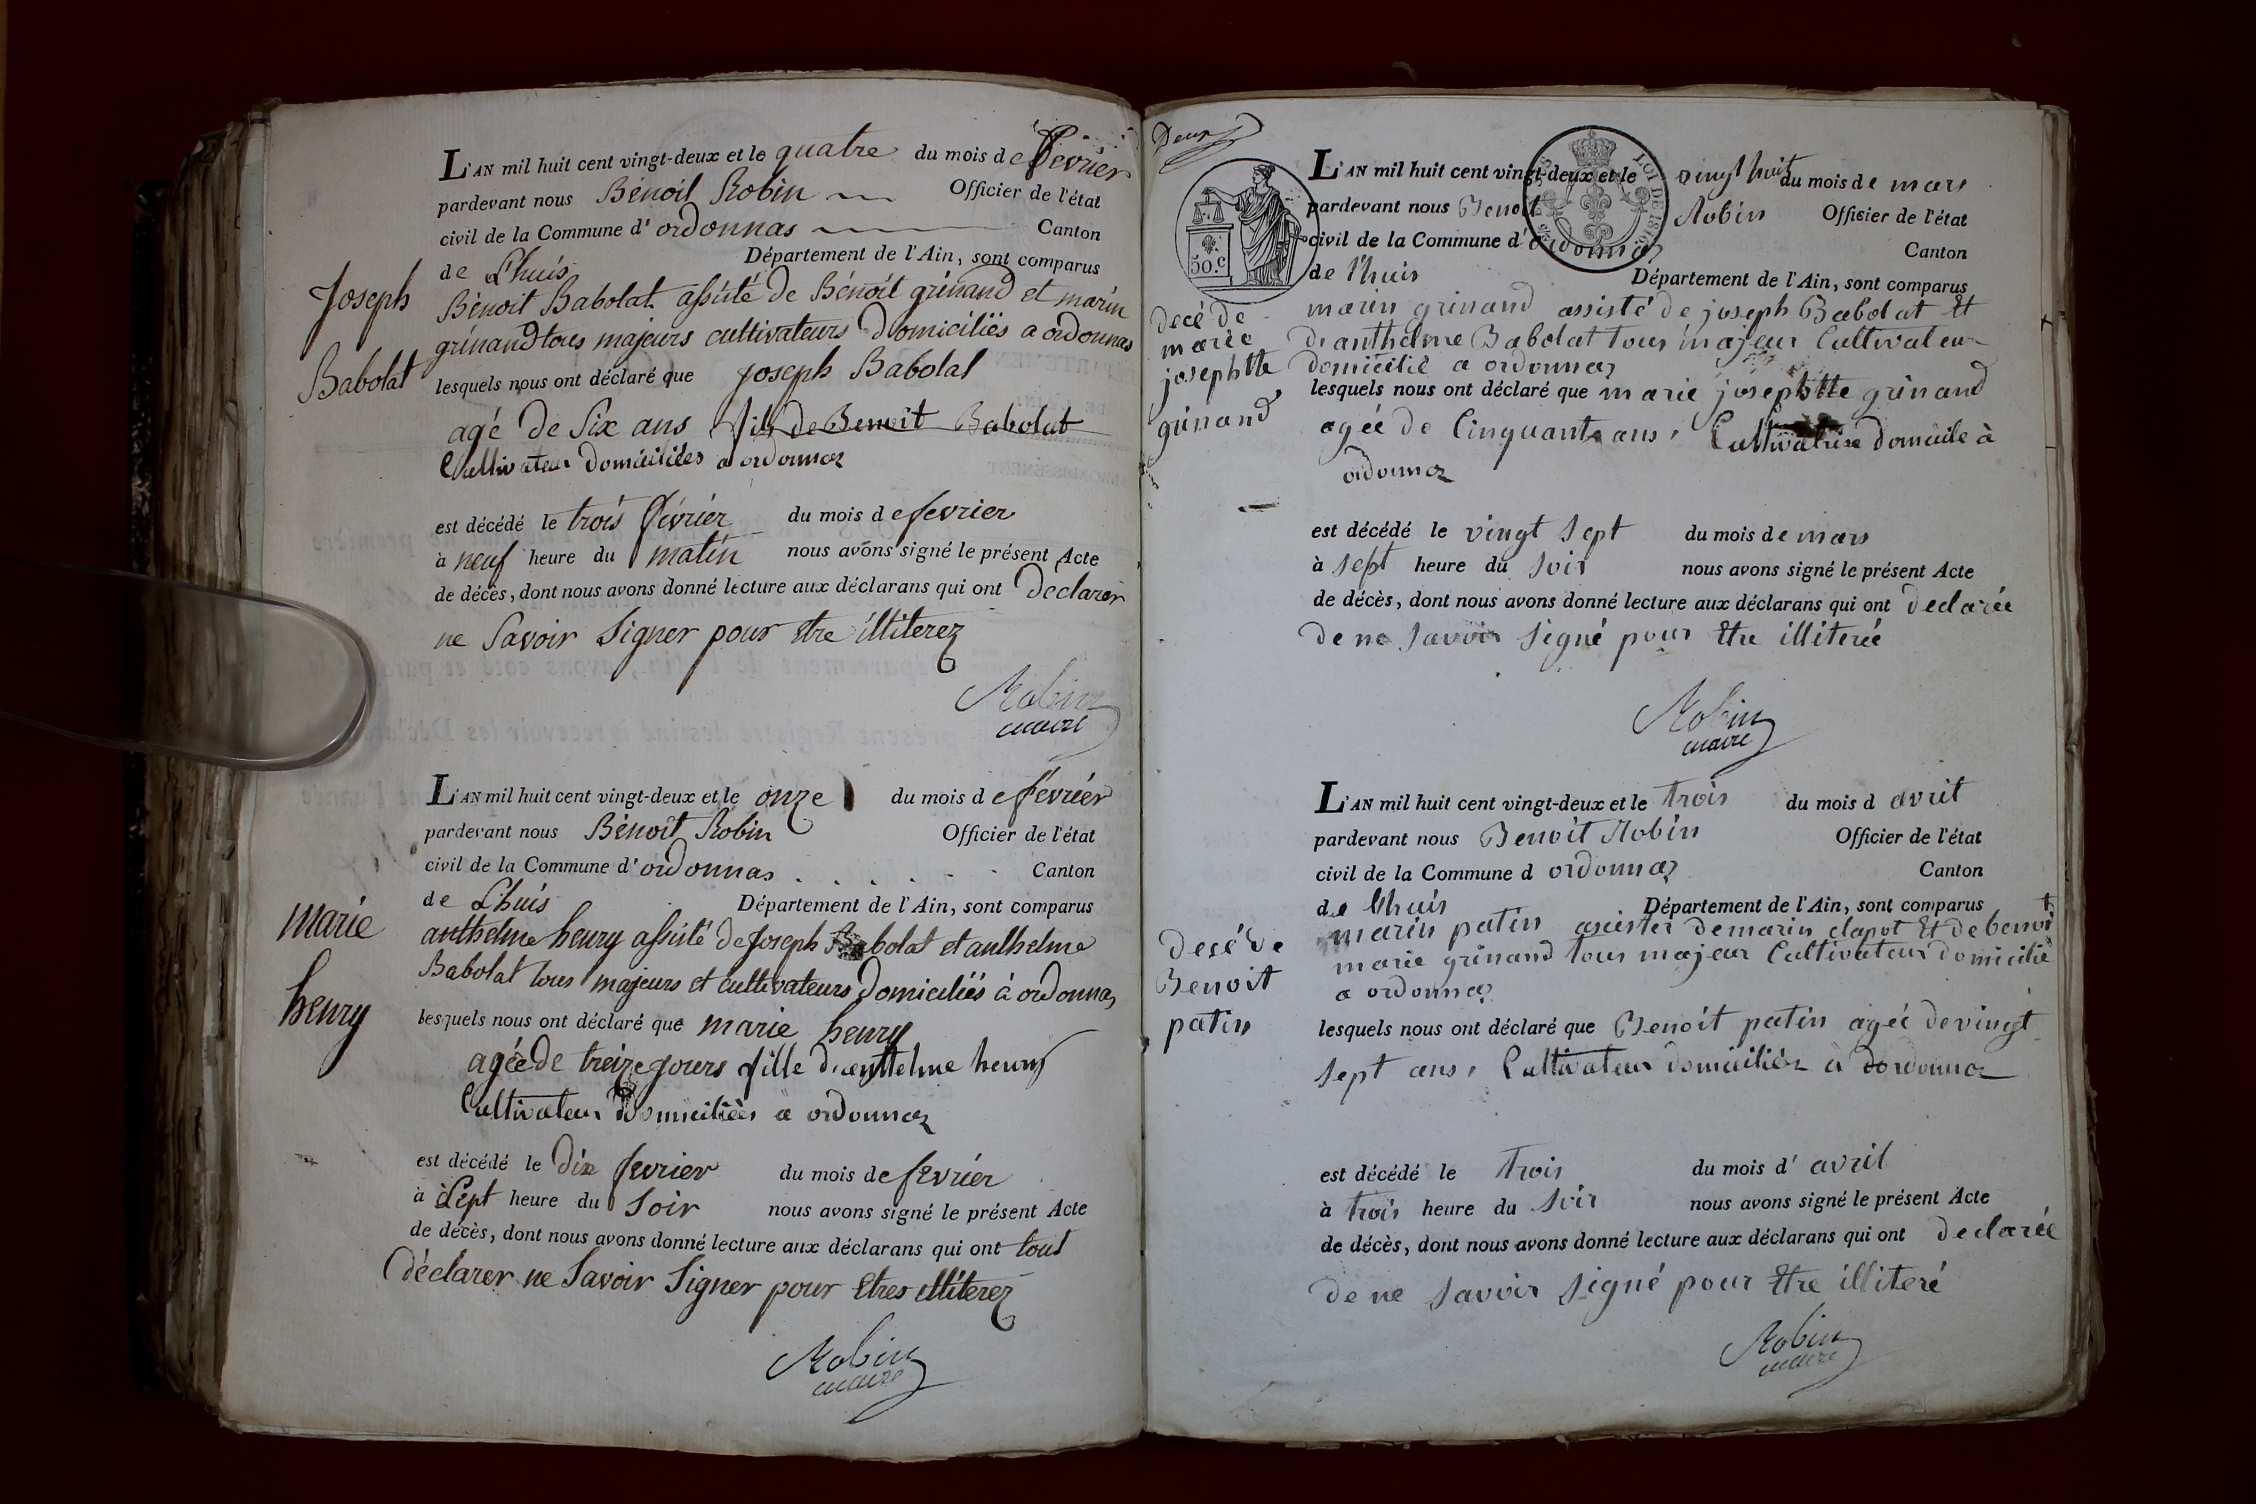 Joseph
Babolat
L'AN mil huit cent vingt-deux et le quatre du mois de fevrier
pardevant nous Bénoit Robin Officier de l'état
civil de la Commune d'ordonnas Canton
de L'huis Département de l'Ain, sont comparus
Bénoit Babolat assisté de Bénoit grinand et marin
grinand tous majeurs cultivateurs Domiciliés a ordonnas
lesquels nous ont déclaré que Joseph Babolat
agé de Six ans fils de Benoit Babolat
Cultivateur domiciliées a ordonnaz
est décédé le trois février du mois de fevrier
à neuf heure du matin nous avons signé le présent Acte
de décès, dont nous avons donné lecture aux déclarans qui ont Déclarer
ne Savoir Signer pour Etre illiterez
Robin
maire
marie
henry
L'AN mil huit cent vingt-deux et le onze du mois de février
pardevant nous Bénoit Robin Officier de l'état
civil de la Commune d'ordonnas Canton
de L'huis Département de l'Ain, sont comparus
anthelme henry assisté de Joseph Babolat et anthelme
Babolat tous majeurs et cultivateurs Domiciliés à ordonnas
lesquels nous ont déclaré que marie henry
agée De treize jours fille d'anthelme henry
Cultivateur Domiciliées a ordonnaz
est décédé le dix fevrier du mois de février
à Sept heure du Soir nous avons signé le présent Acte
de décès, dont nous avons donné lecture aux déclarans qui ont tout
déclarer ne Savoir Signer pour Etres illiterez
Robin
maire
Deux
50.c
LOI DE 1816.
decé de
marie
josephtte
grinand
L'AN mil huit cent vingt-deux et le vingt huit du mois de mars
pardevant nous Benoit Robin Officier de l'état
civil de la Commune d'ordonnaz Canton
de l'huis Département de l'Ain, sont comparus
marin grinand assisté de joseph Babolat Et
d'anthelme Babolat tous majeur Cultivateur
domicilié a ordonnaz
lesquels nous ont déclaré que marie josephtte grinand
agée de Cinquante ans, Cultivatrise domicile à
ordonnaz
est décédé le vingt Sept du mois de mars
à sept heure du Soir nous avons signé le présent Acte
de décès, dont nous avons donné lecture aux déclarans qui ont declarée
de ne Savoir Signé pour Etre illiterée
Robin
maire
decé de
Benoit
patin
L'AN mil huit cent vingt-deux et le trois du mois d avril
pardevant nous Benoit Robin Officier de l'état
civil de la Commune d ordonnaz Canton
de l'huis Département de l'Ain, sont comparus
marin patin assister de marin clapot Et de benoit
marie grinand tous majeur Cultivateur domicilié
a ordonnaz
lesquels nous ont déclaré que Benoit patin agée de vingt
Sept ans, Cultivateur domiciliéz à dordonnaz
est décédé le trois du mois d' avril
à trois heure du Soir nous avons signé le présent Acte
de décès, dont nous avons donné lecture aux déclarans qui ont declarée
de ne Savoir Signé pour Etre illiteré
Robin
maire